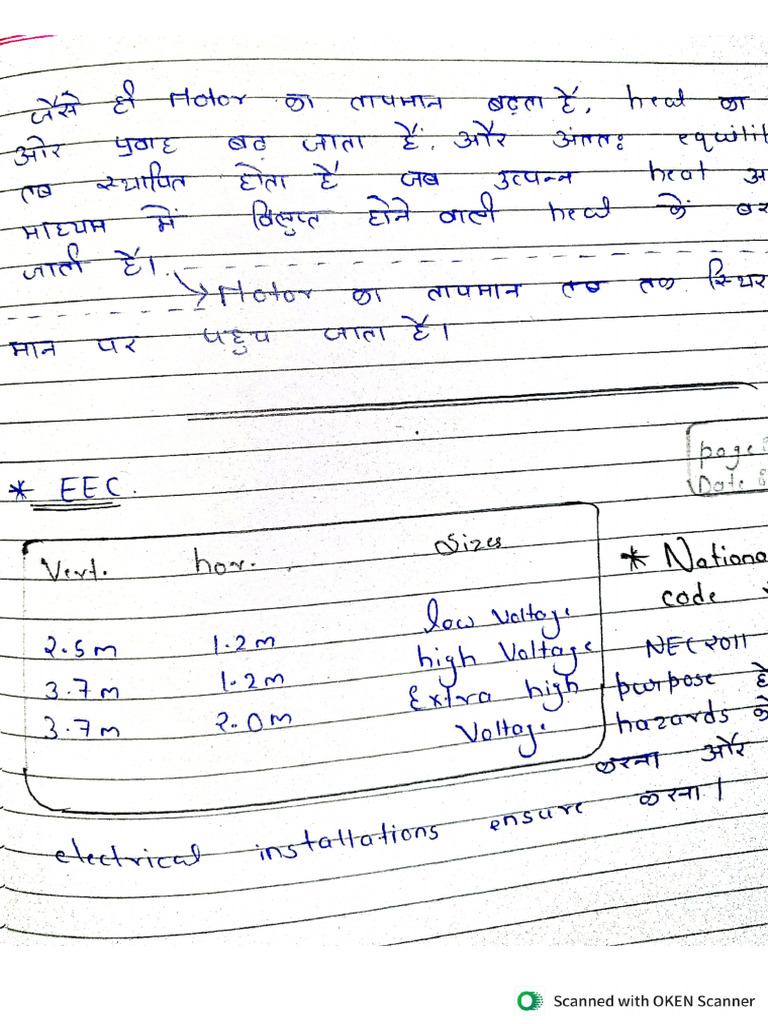 जैसे ही Motor का तापमान बढ़ता है, heat का
ओर प्रवाह बढ़ जाता हैं, और अंततः equilit
तब स्थापित होता है जब उत्पन्न heat अ
माध्यम में विलुप्त होने वाली heat कें बर
जाती हैं।
Motor का तापमान तब तक स्थिर
मान पर पहुच जाता हैं।
page
Date
* EEC.
Vert. hor. Sizes
2.5m 1.2m low Voltage
3.7m 1.2m high Voltage
3.7m 2.0m Extra high
Voltage
* Nationa
code
NEC2011
purpose
hazards
करना और
electrical installations ensure करना।
Scanned with OKEN Scanner